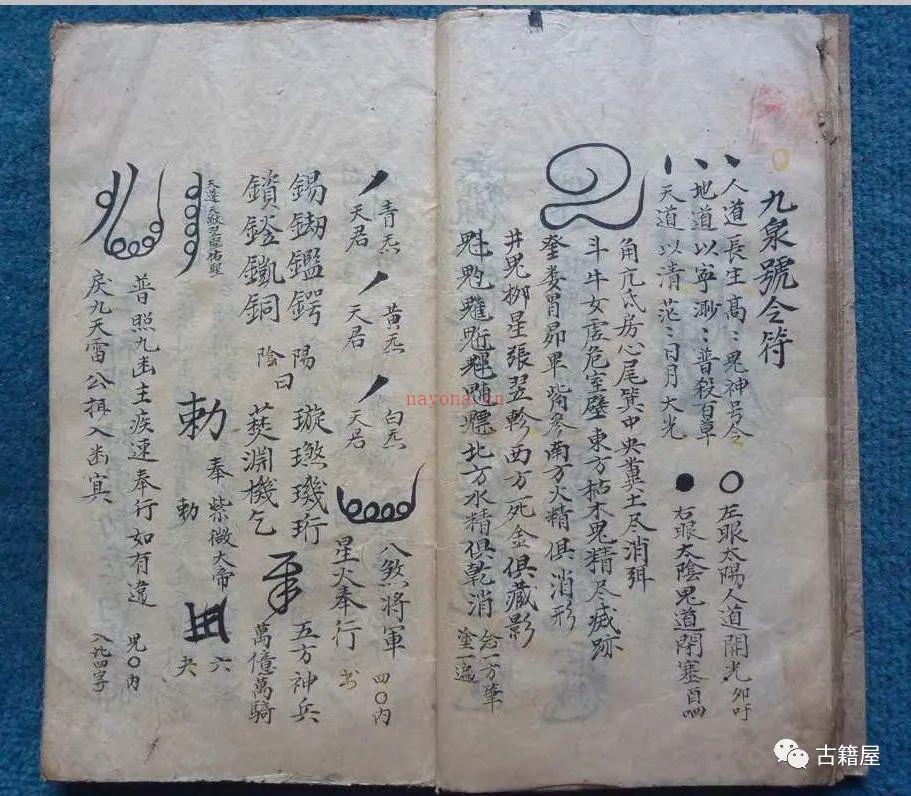 九泉號令符
人道長生高:鬼神号令
地道以寧渺:普殺百草
天道以清茫:日月大光
左眼太陽人道開光 卯吁
右眼太陰鬼道閉塞 百呬
角亢氐房心尾箕中央糞土尽消弭
斗牛女虛危室壁東方枯木鬼精尽滅跡
奎婁胃昴畢觜參南方火精俱消形
井鬼栁星張翌軫西方死金俱藏影
北方水精俱乾消
念一方筆
塗一遍
青炁天君
黃炁天君
白炁天君
八煞將軍 四〇內
星火奉行 书
錫鐗鑑鍔 陽
鎖鐙鐵銅 陰曰
璇 璣珩
五方神兵
萬億萬騎
淵機乞
勅 奉紫微大帝勅
六夬
普照九幽主疾速奉行如有違
戾九天雷公揖入幽寘
鬼〇內
入九四字
nayona.cn
古籍屋